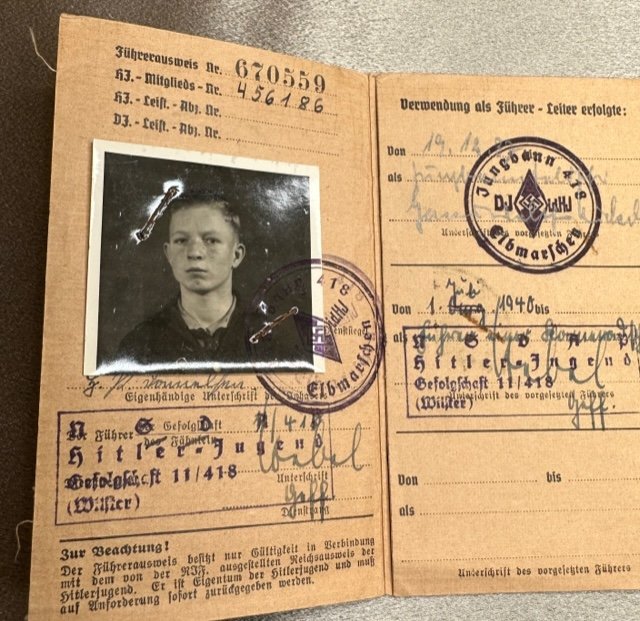 Führerausweis Nr. 670559
HJ.-Mitglieds-Nr. 456186
HJ.-Leist.-Abz. Nr.
DJ.-Leist.-Abz. Nr.
Jungbann 418
DJ HJ
Elbmarschen
Eigenhändige Unterschrift des Inhabers
Der Führer der Gefolgschaft 11/418
des Fähnlein
N S D A P
Hitler-Jugend
Gefolgschaft 11/418
(Wilster)
Unterschrift
Geff.
Dienstrang
Zur Beachtung!
Der Führerausweis besitzt nur Gültigkeit in Verbindung
mit dem von der RJF. ausgestellten Reichsausweis der
Hitlerjugend. Er ist Eigentum der Hitlerjugend und muß
auf Anforderung sofort zurückgegeben werden.
Verwendung als Führer - Leiter erfolgte:
Von 19.12.
als
Jungbann 418
DJ HJ
Elbmarschen
Unterschrift des vorgesetzten Führers
Von 1. 1940 bis
als Führer einer
N S D A P
Hitler-Jugend
Gefolgschaft 11/418
(Wilster)
Unterschrift des vorgesetzten Führers
Geff.
Von bis
als
Unterschrift des vorgesetzten Führers